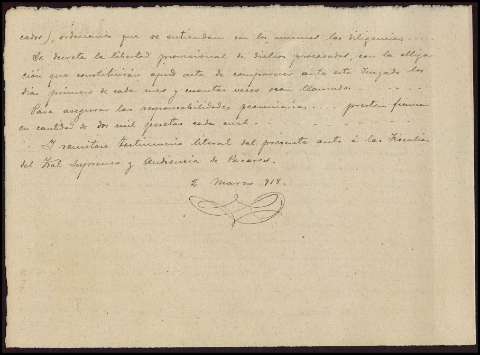 cados), ordenando que se entiendan con los mismos las diligencias ....
Se decreta la libertad provisional de dichos procesados, con la obliga
ción que constituirán apud acta de comparecer ante este Juzgado los
días primero de cada mes y cuantas veces sean llamados. . . . .
Para asegurar las responsabilidades pecuniarias . . . presten fianza
en cantidad de dos mil pesetas cada uno. . .
. . Y remítase testimonio literal del presente auto á las Fiscalías
del Tral Supremo y Audiencia de Cáceres.
2 Marzo 918.